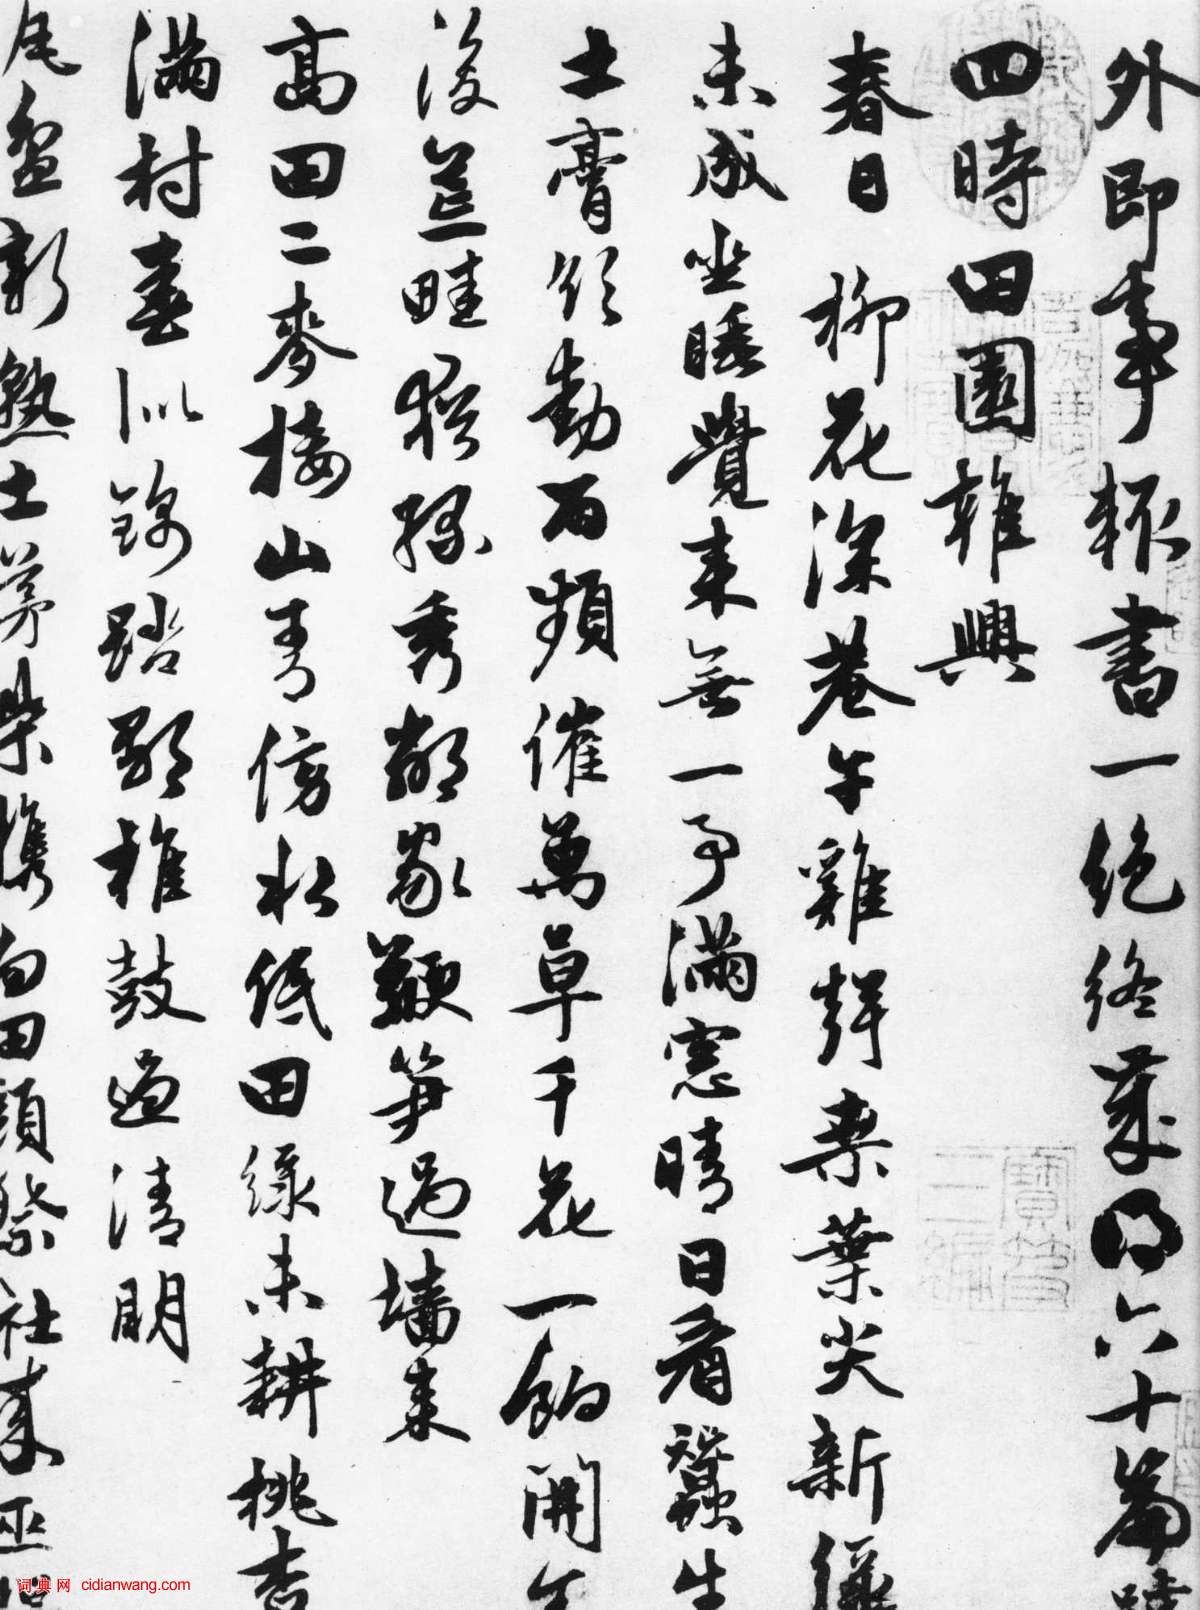 外即事輒書一絕終歲得六十篇號
四時田園雜興
春日 柳花深巷午雞聲桑葉尖新綠
未成坐睡覺來無一事滿窓晴日看蠶生
土膏欲動雨頻催萬草千花一餉開舍
後荒畦猶綠秀鄰家鞭筍過墻來
高田二麥接山青傍水低田綠未耕桃杏
滿村春似錦踏歌椎鼓過清明
盆新熟茅柴攜向田頭祭社來巫
寶笈三編
词典网 cidianwang.com